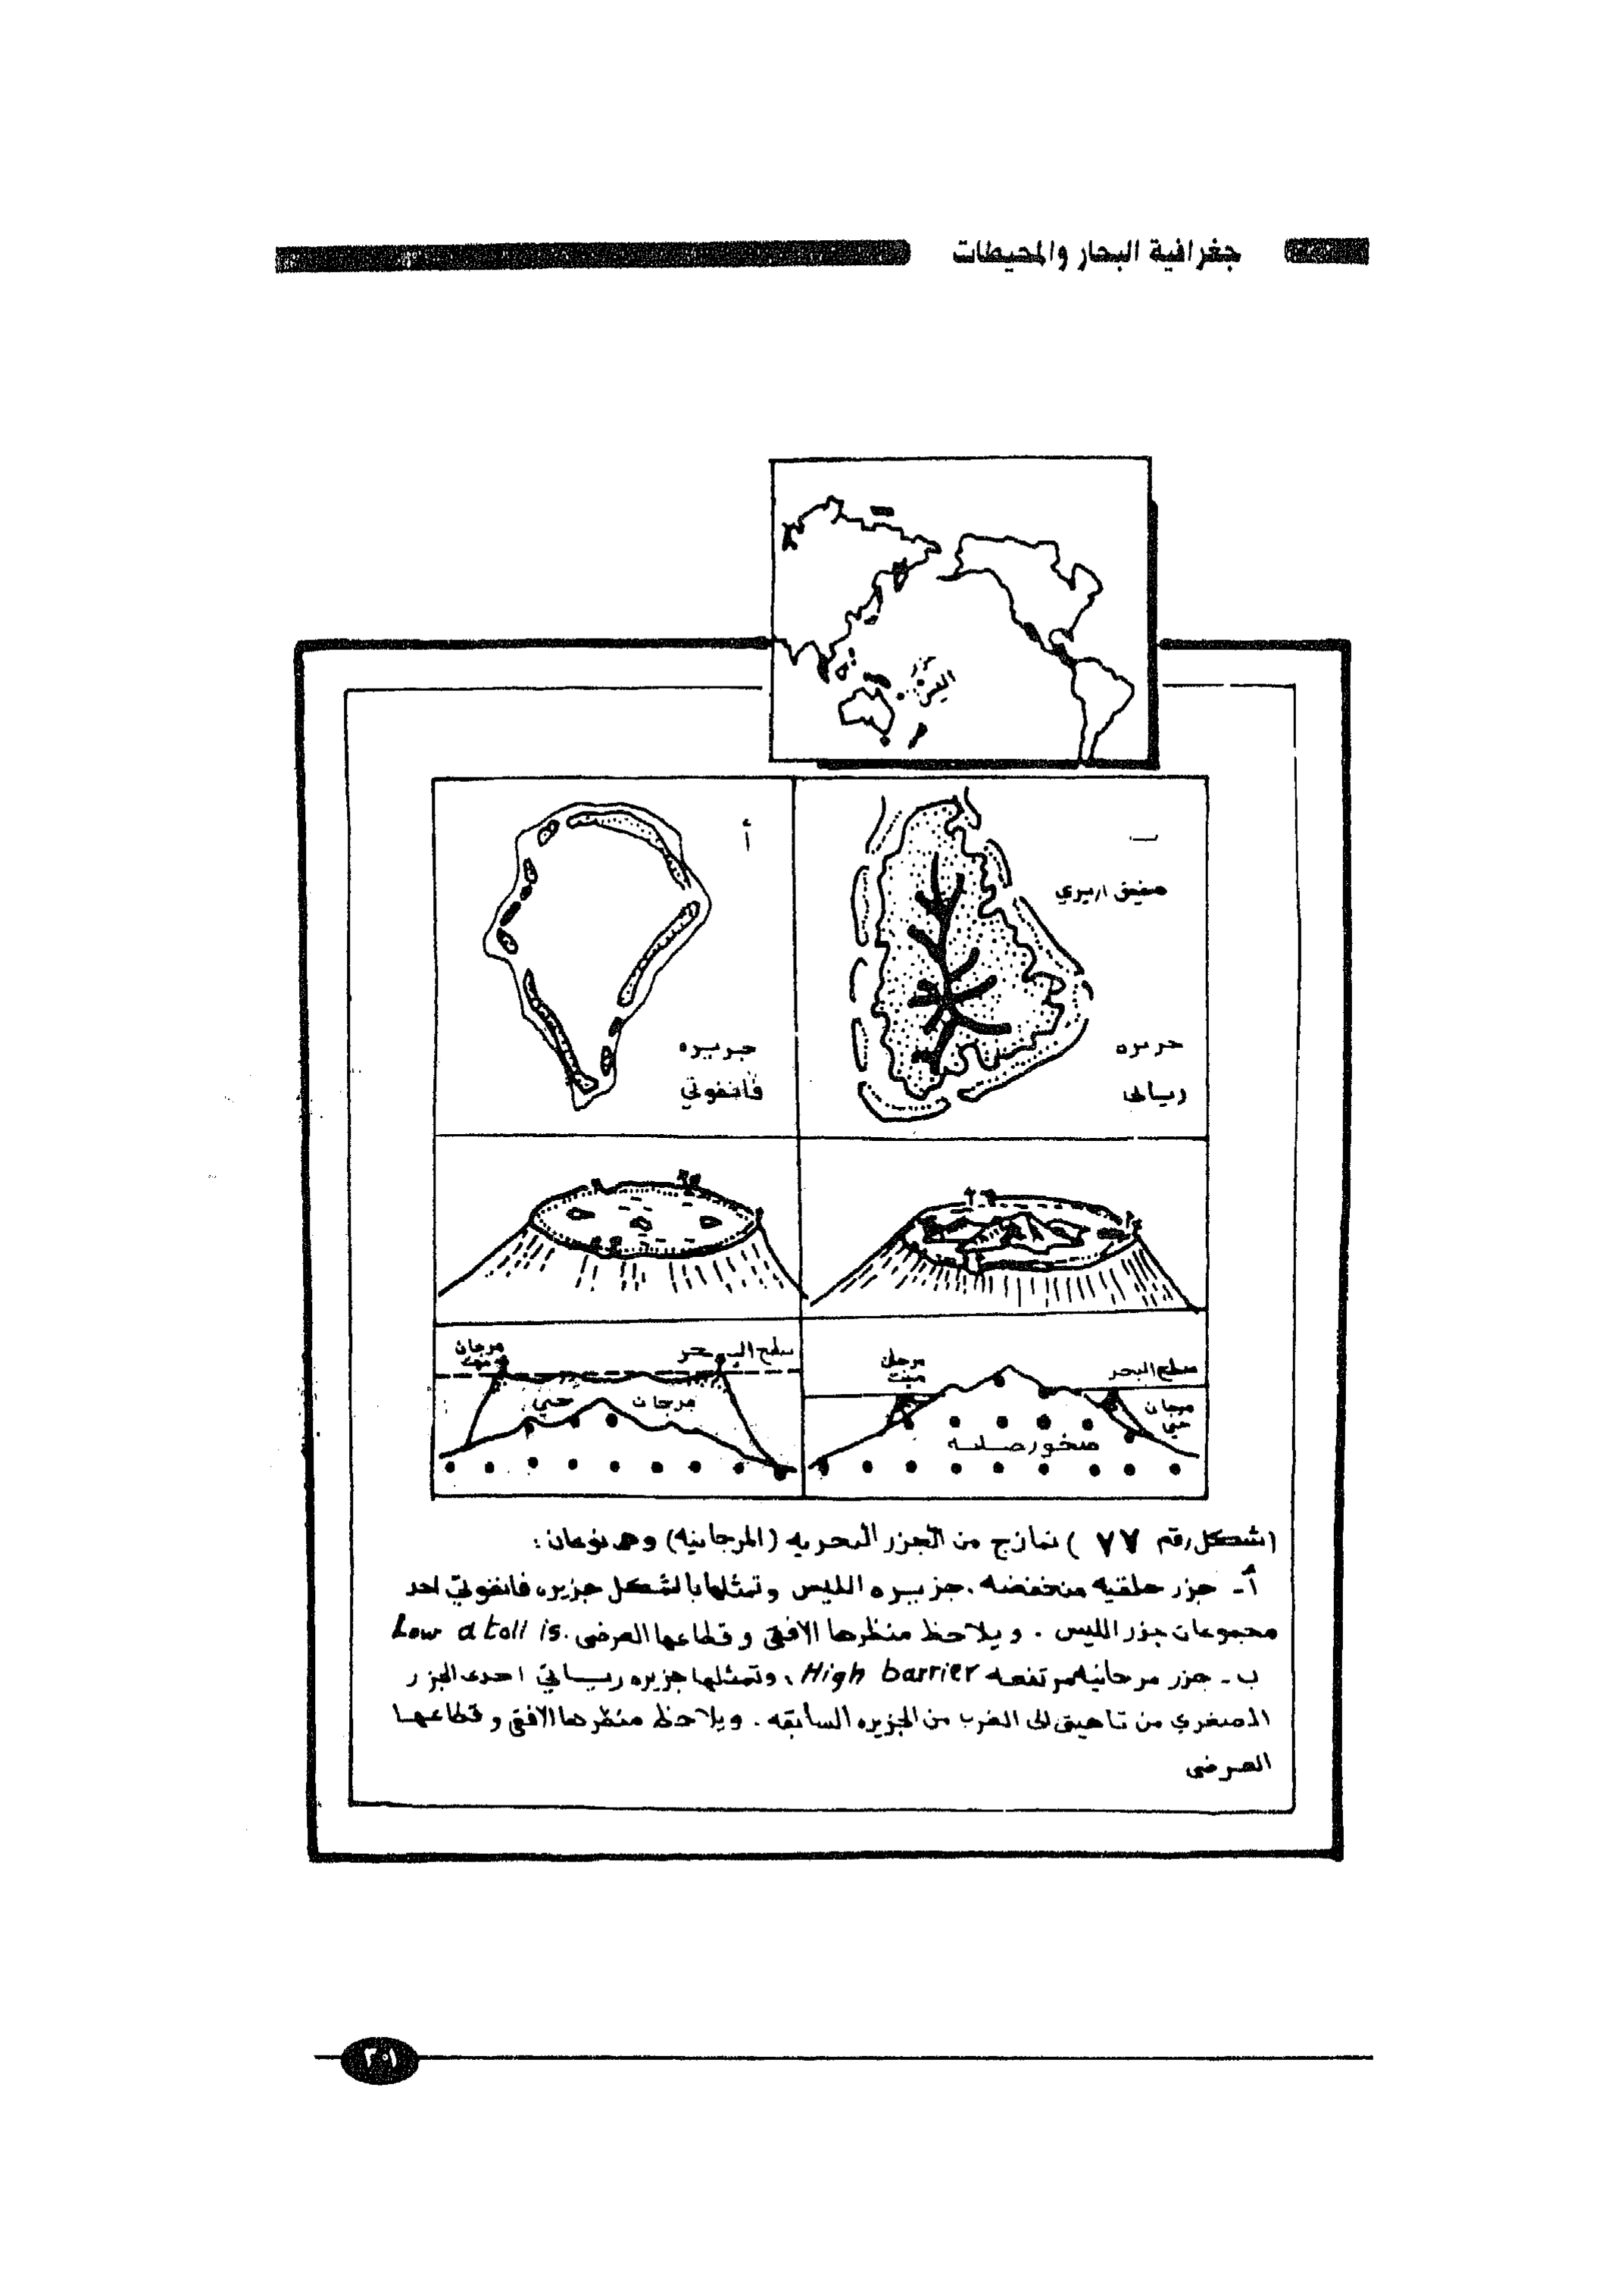 جغرافية البحار والمحيطات
جزر
الليس
أ
ب
مضيق اربري
جزيره
فانفوتي
جزيره
رياتى
مرجان
ميت
سطح البحر
مرجان
حي
مرجان
ميت
سطح البحر
مرجان
حي
صخور صلبه
(شكل رقم ٧٧ ) نمازج من الجزر البحريه (المرجانيه) وهى نوعان :
أ- جزر حلقيه منخفضه . جزيره الليس وتمثلها بالشكل جزيره فانفوتي احد
مجموعات جزر الليس . ويلاحظ منظرها الافقى وقطاعها العرضى . Low atoll is
ب - جزر مرجانيه مرتفعه High barrier ، وتمثلها جزيره رياتي احدى الجزر
الصغرى من تاهيتى الى الغرب من الجزيره السابقه . ويلاحظ منظرها الافقى وقطاعها
العرضى
٣٠١